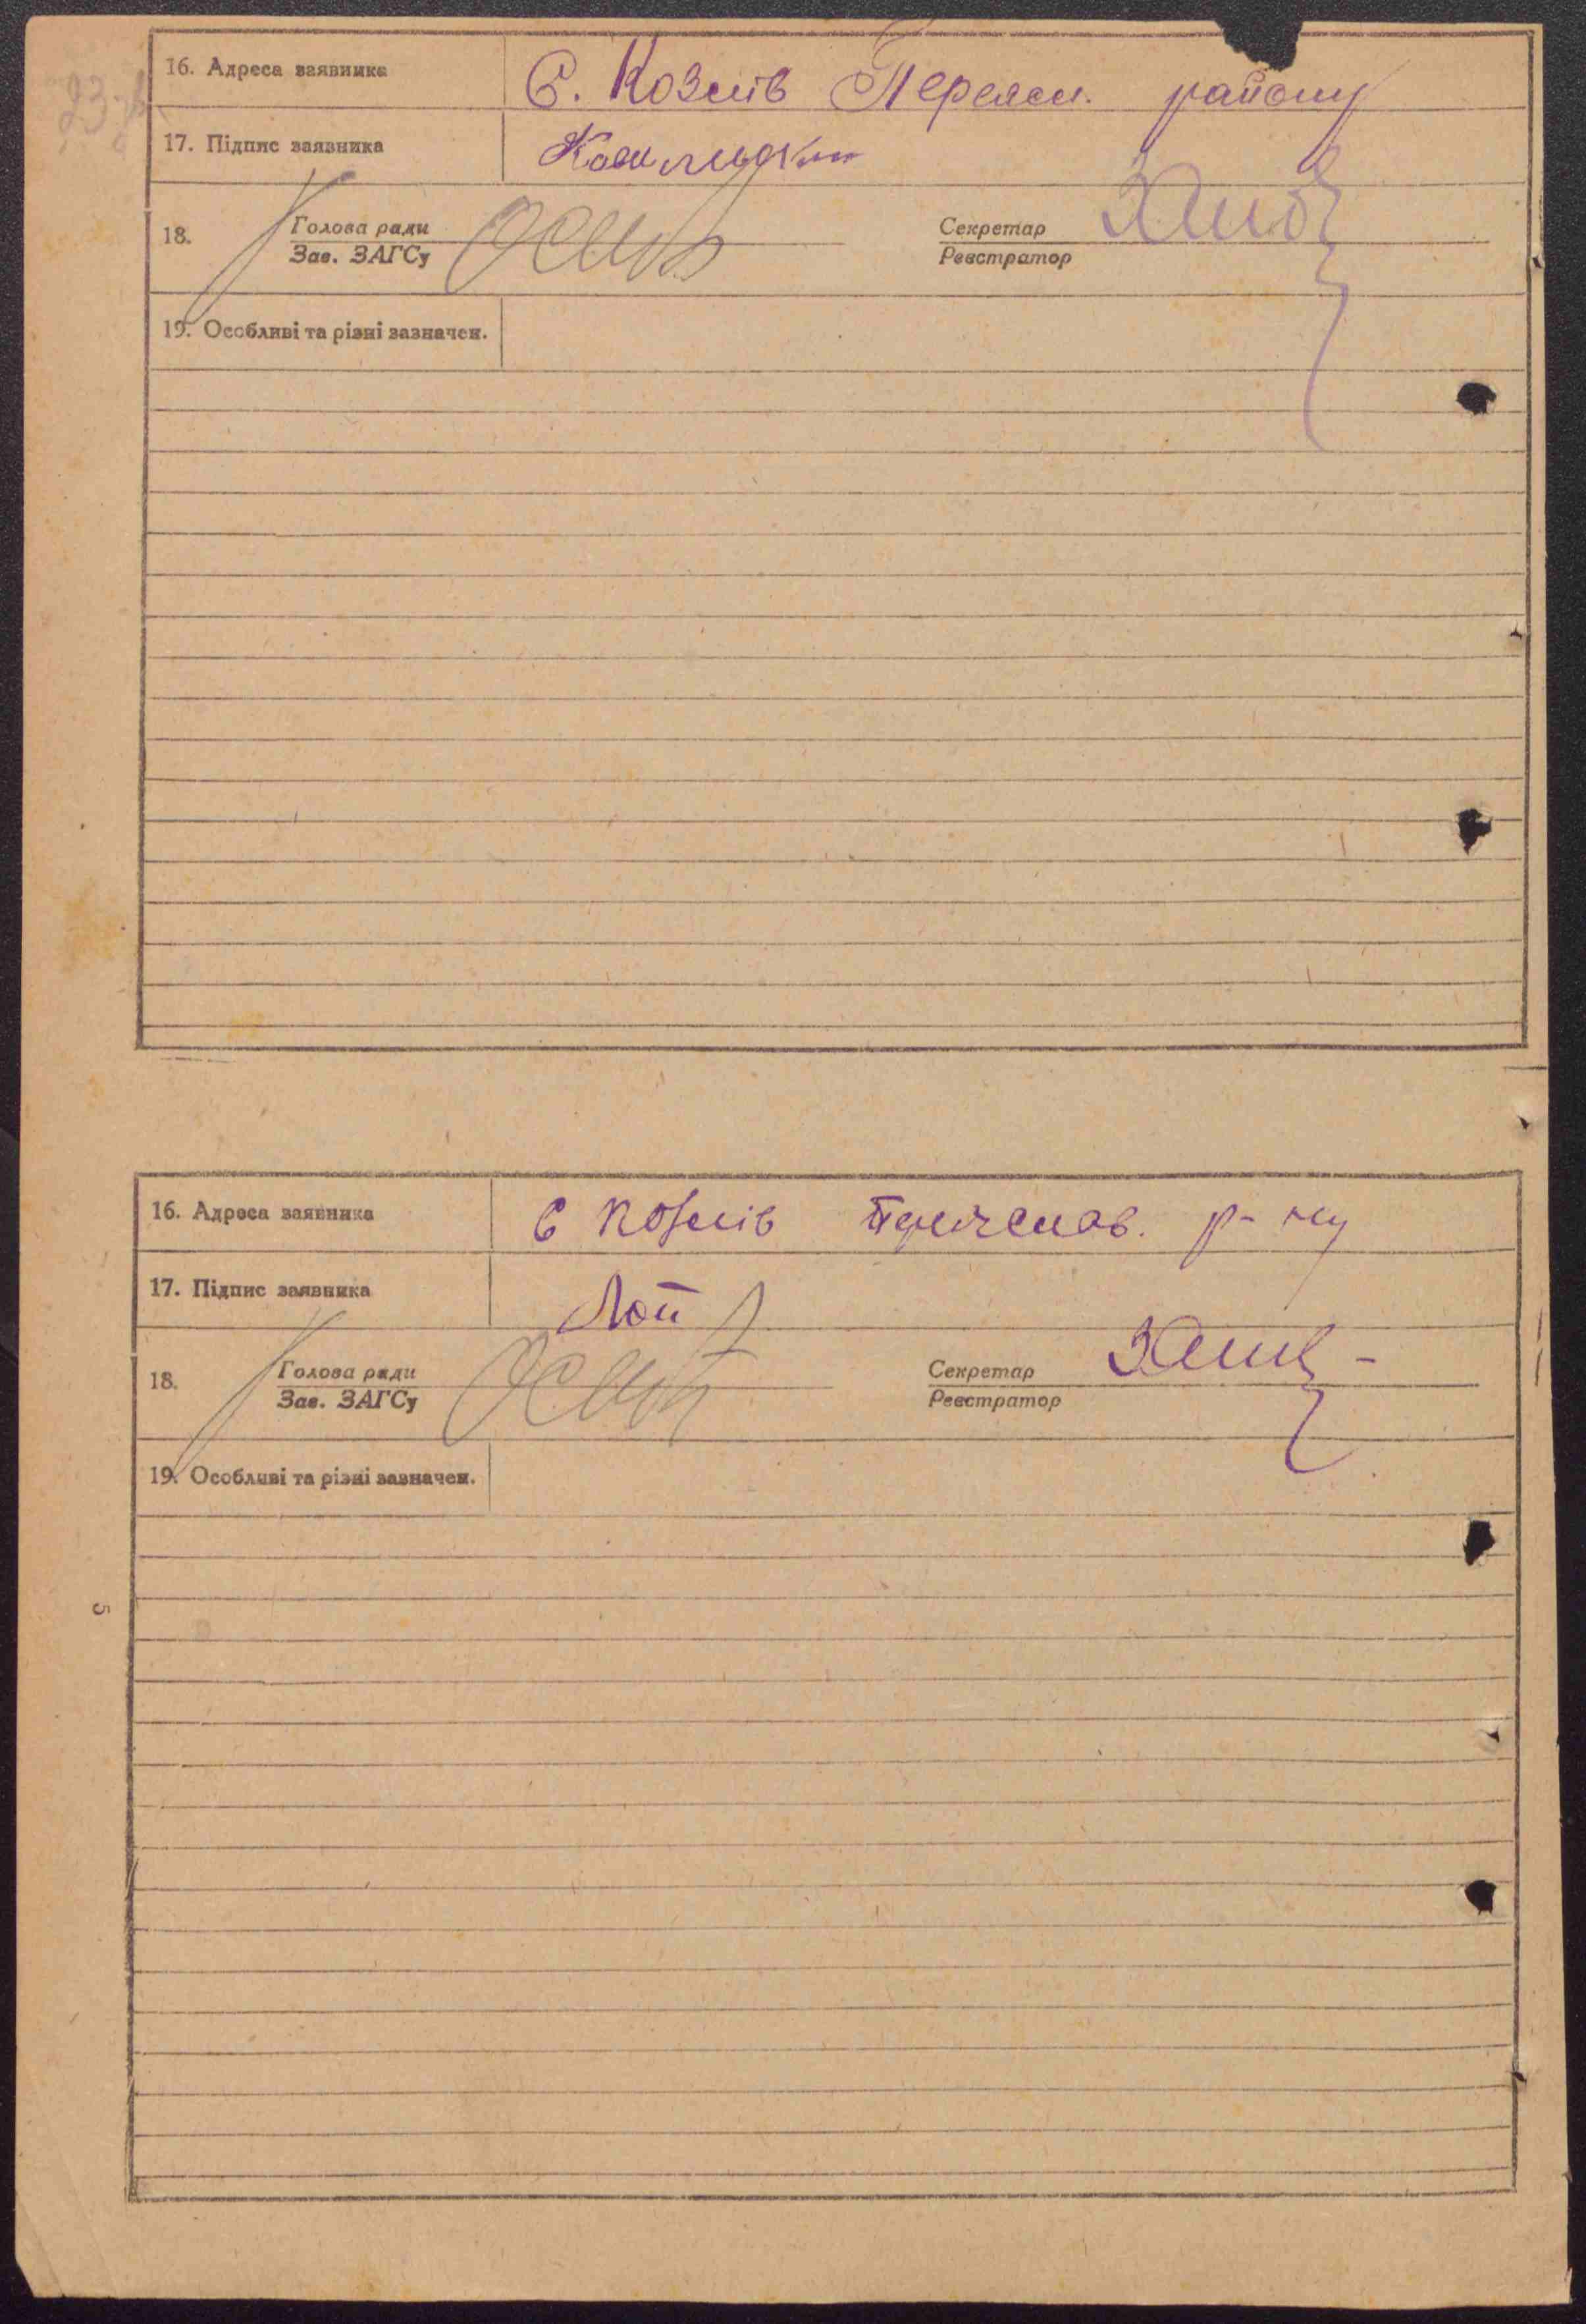 16. Адреса заявника С. Козлів Переясл. району
17. Підпис заявника
18. Голова ради Секретар
Зав. ЗАГСу Реєстратор
19. Особливі та різні зазначен.
16. Адреса заявника с Козлів Переяслав. р-ну
17. Підпис заявника Лой
18. Голова ради Секретар
Зав. ЗАГСу Реєстратор
19. Особливі та різні зазначен.
5